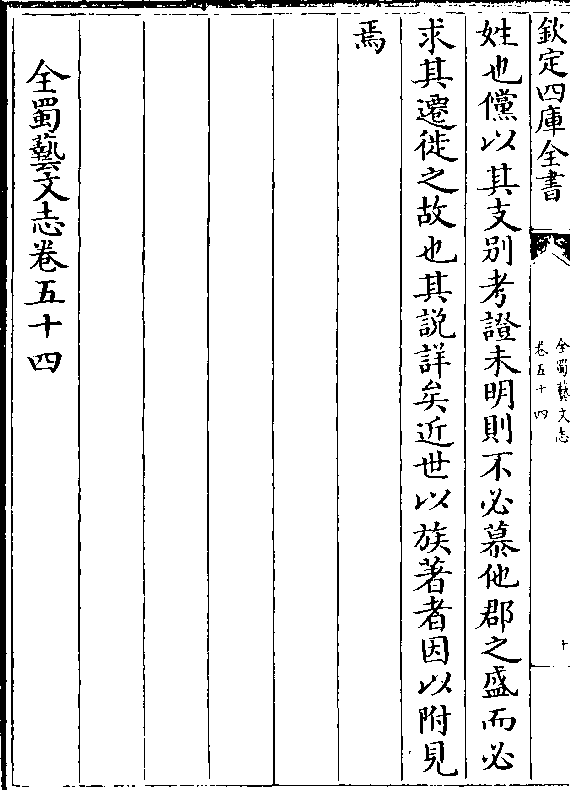 欽定四庫全書
全蜀藝文志
卷五十四
十
姓也儻以其支别考證未明則不必慕他郡之盛而必
求其遷徙之故也其説詳矣近世以族著者因以附見
焉
全蜀藝文志卷五十四